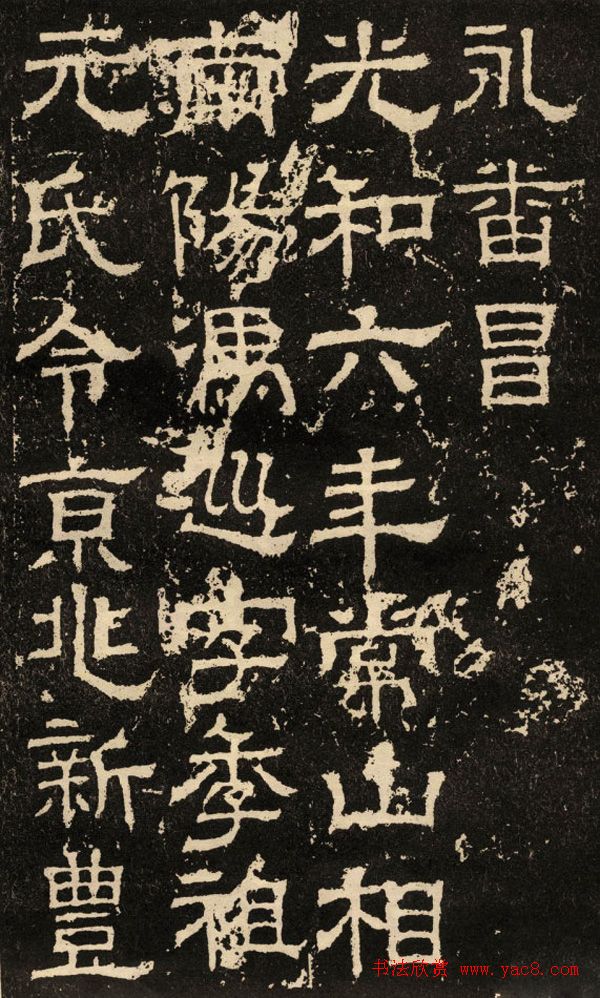 永番昌
光和六年常山相
南陽馮巡字季祖
元氏令京兆新豐
书法欣赏 www.yac8.com